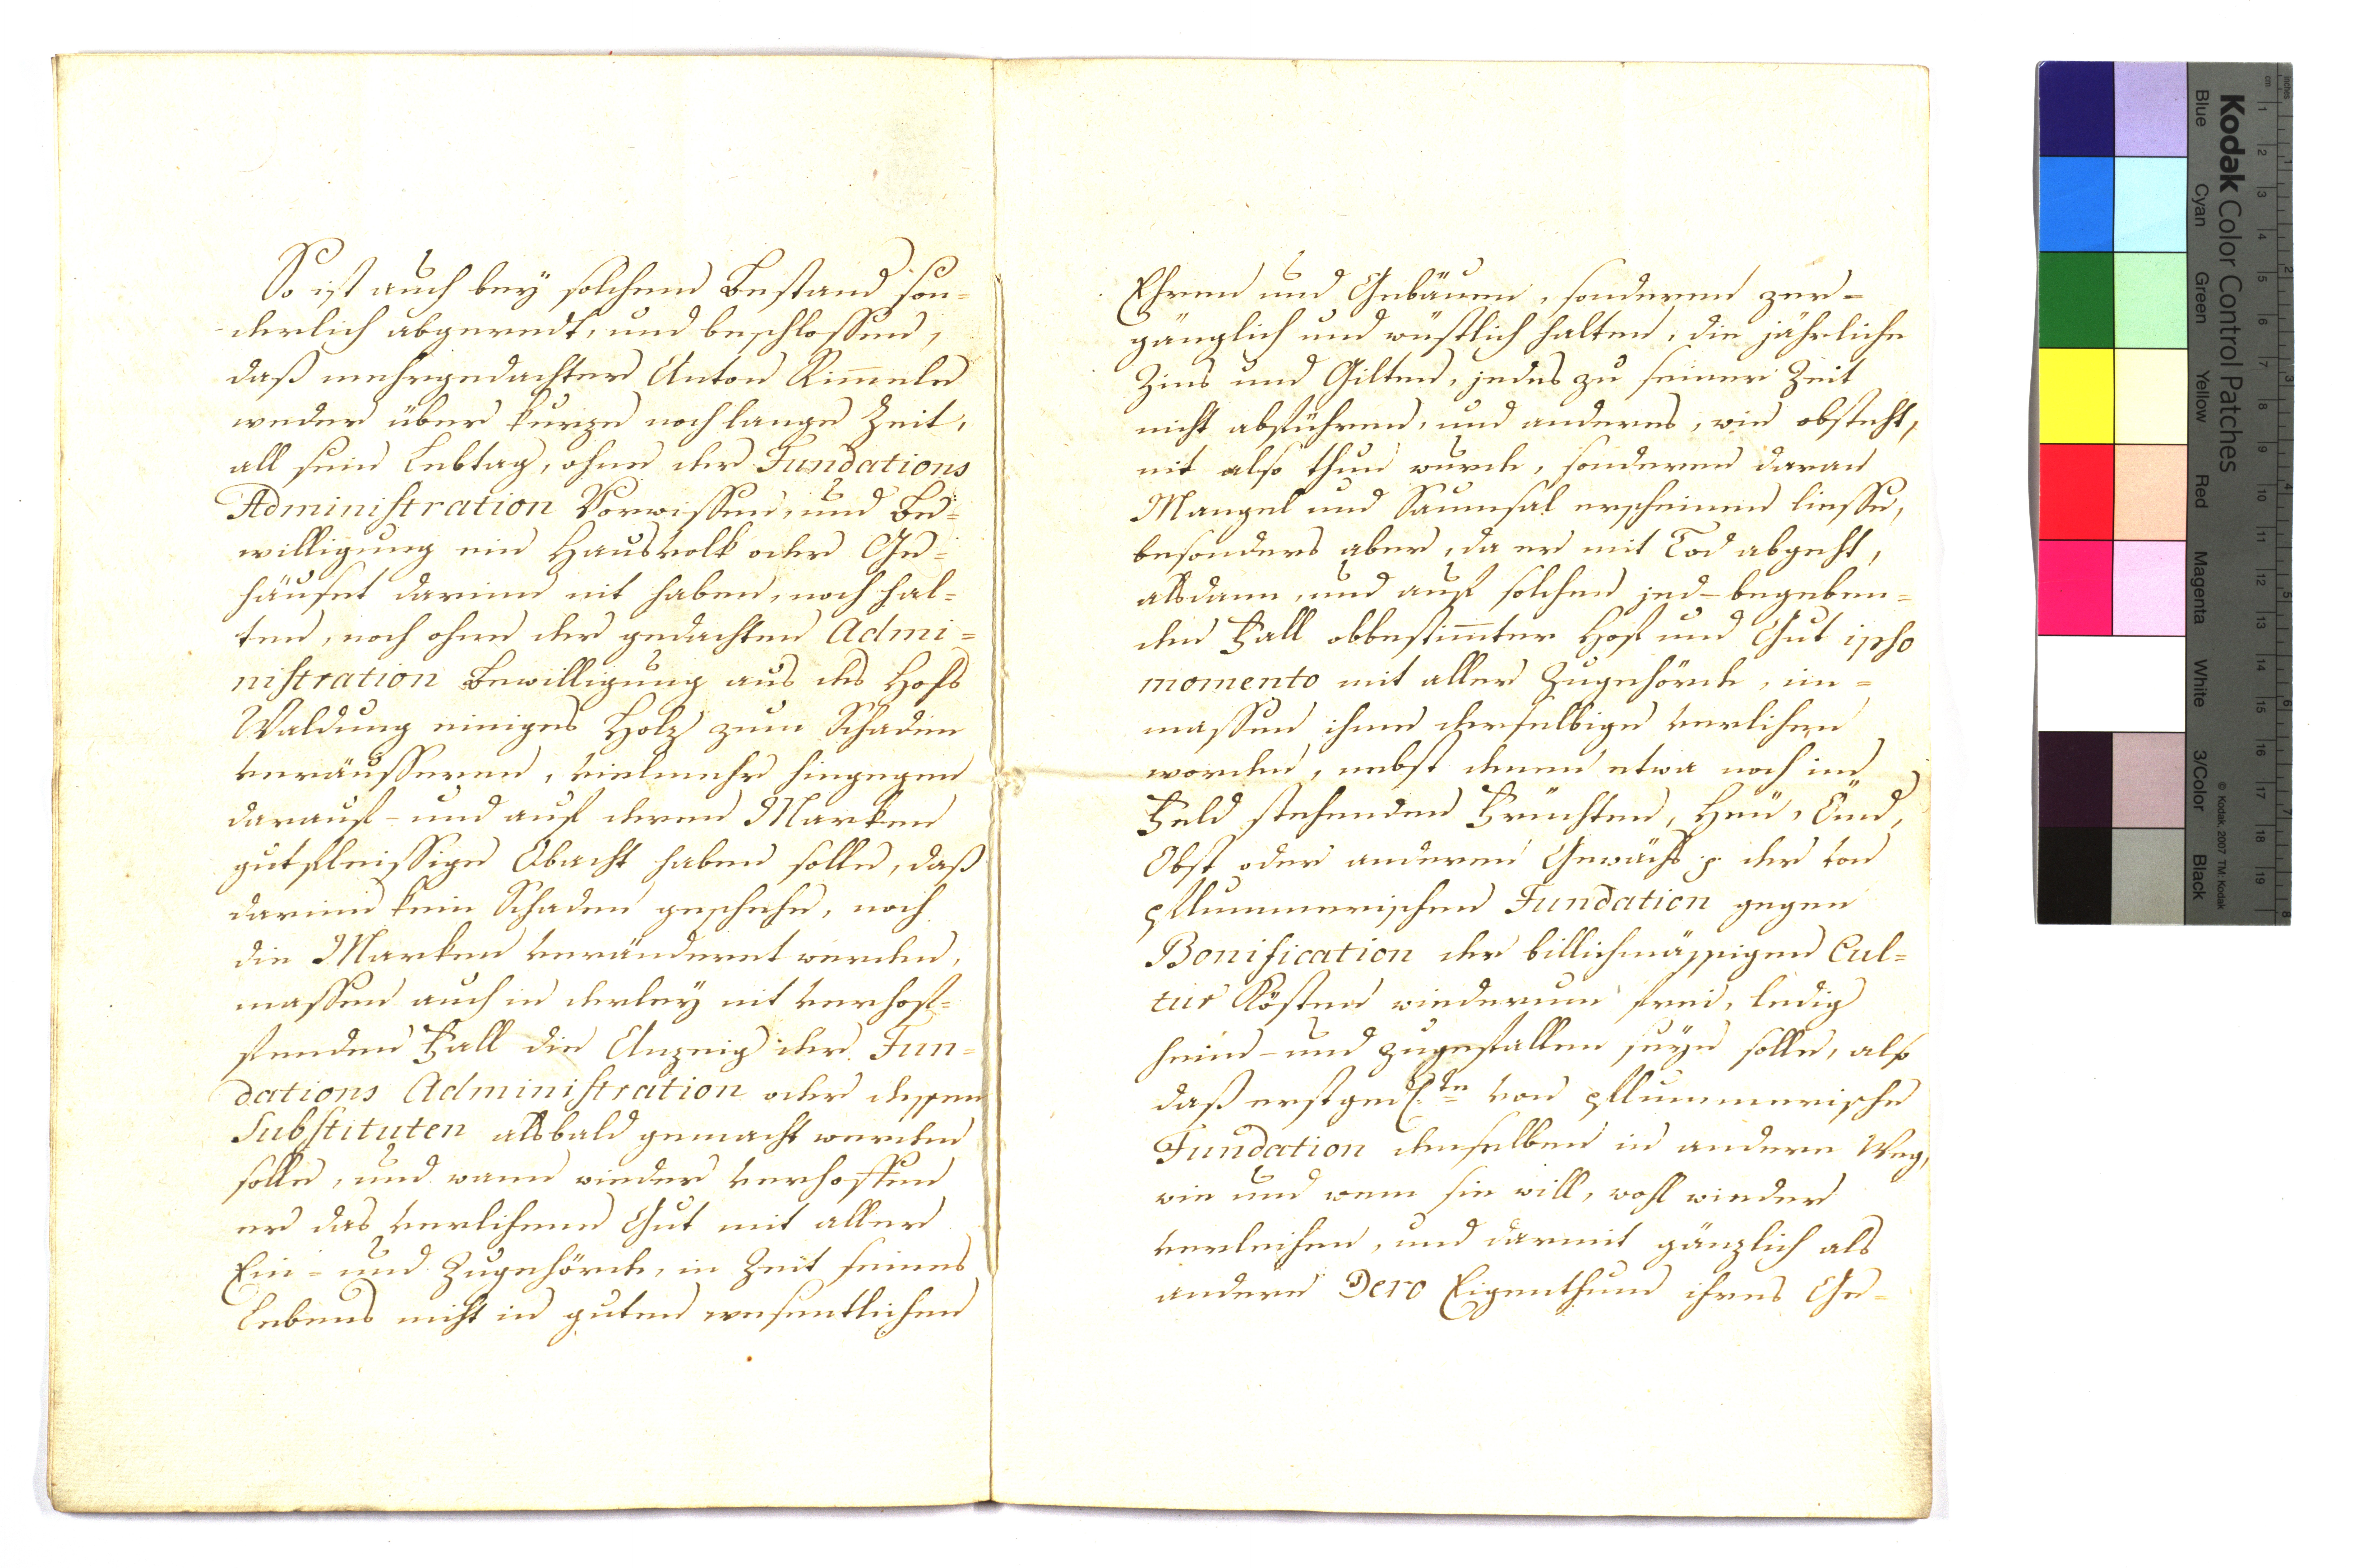 So ist auch bey solchem Bestand son=
derlich abgeredt, und beschlossen,
daß mehrgedachter Anton Rim̅ele
weder über kurze noch lange Zeit,
all sein Lebtag, ohne der Fundations
Administration Vorwissen, und Be=
willigung ein Hausvolk oder Ge=
häuset darinn nit haben, noch hal=
ten, noch ohne der gedachten Admi=
nistration Bewilligung aus des Hofs
Waldung einiges Holz zum Schaden
veräusseren, vielmehr hingegen
darauf- und auf deren Marken
gutfleissige Obacht haben solle, daß
darinn kein Schaden geschehe, noch
die Marken verändert werden,
massen auch in derley nit verhof=
fenden Fall die Anzeig der Fun=
dations Administration oder dessen
Substituten alsbald gemacht werden
solle, und wann wieder verhoffen
er das verlihene Gut mit aller
Ein- und Zugehörde, in Zeit seines
Lebens nicht in guten wesentlichen
Ehren und Gebäuen, sonderen zer-
gänglich und wüstlich halten, die jährliche
Zins und Gilten, jedes zu seiner Zeit
nicht abführen, und anderes, wie obsteht,
nit also thun wurde, sonderen daran
Mangel und Saumsal erscheinen liesse,
besonders aber, da er mit Tod abgeht,
alsdann, und auf solchen jed-begeben=
den Fall obbestim̅ter Hof und Gut ipso
momento mit aller Zugehörde, im=
massen ihme derselbige verlihen
worden, nebst denen etwa noch im
Feld stehenden Früchten, Heu, Ömd,
Obst oder anderem Gewächs p. der von
pflummerischen Fundation gegen
Bonification der billichmässigen Cul=
tur Kösten wiederum frei, ledig
heim- und zugefallen seyn solle, also
daß erstged.te von pflummerische
Fundation denselben in andere Weg,
wie und wem sie will, wohl wieder
verleihen, und darmit gänzlich als
andere Dero Eigenthum ihres Ge=
Kodak Color Control Patches
Blue Cyan Green Yellow Red Magenta White 3/Color Black
© Kodak, 2007 TM: Kodak
cm 1 2 3 4 5 6 7 8 9 10 11 12 13 14 15 16 17 18 19
inches 1 2 3 4 5 6 7 8